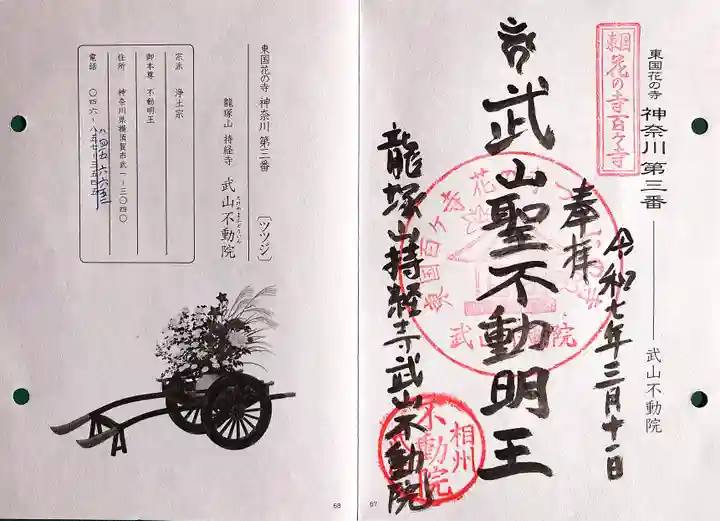 東国花の寺 神奈川 第三番 ― 武山不動院
東国花の寺百ヶ寺
令和七年三月十一日
奉拝
武山聖不動明王
武山不動院
相州
不動院
龍塚山持経寺武山不動院
67
東国花の寺 神奈川 第三番 〔ツツジ〕
龍塚山 持経寺 武山不動院
宗派 浄土宗
御本尊 不動明王
住所 神奈川県横須賀市武一-三〇四〇
電話 〇四六-八五七-三五四五
68